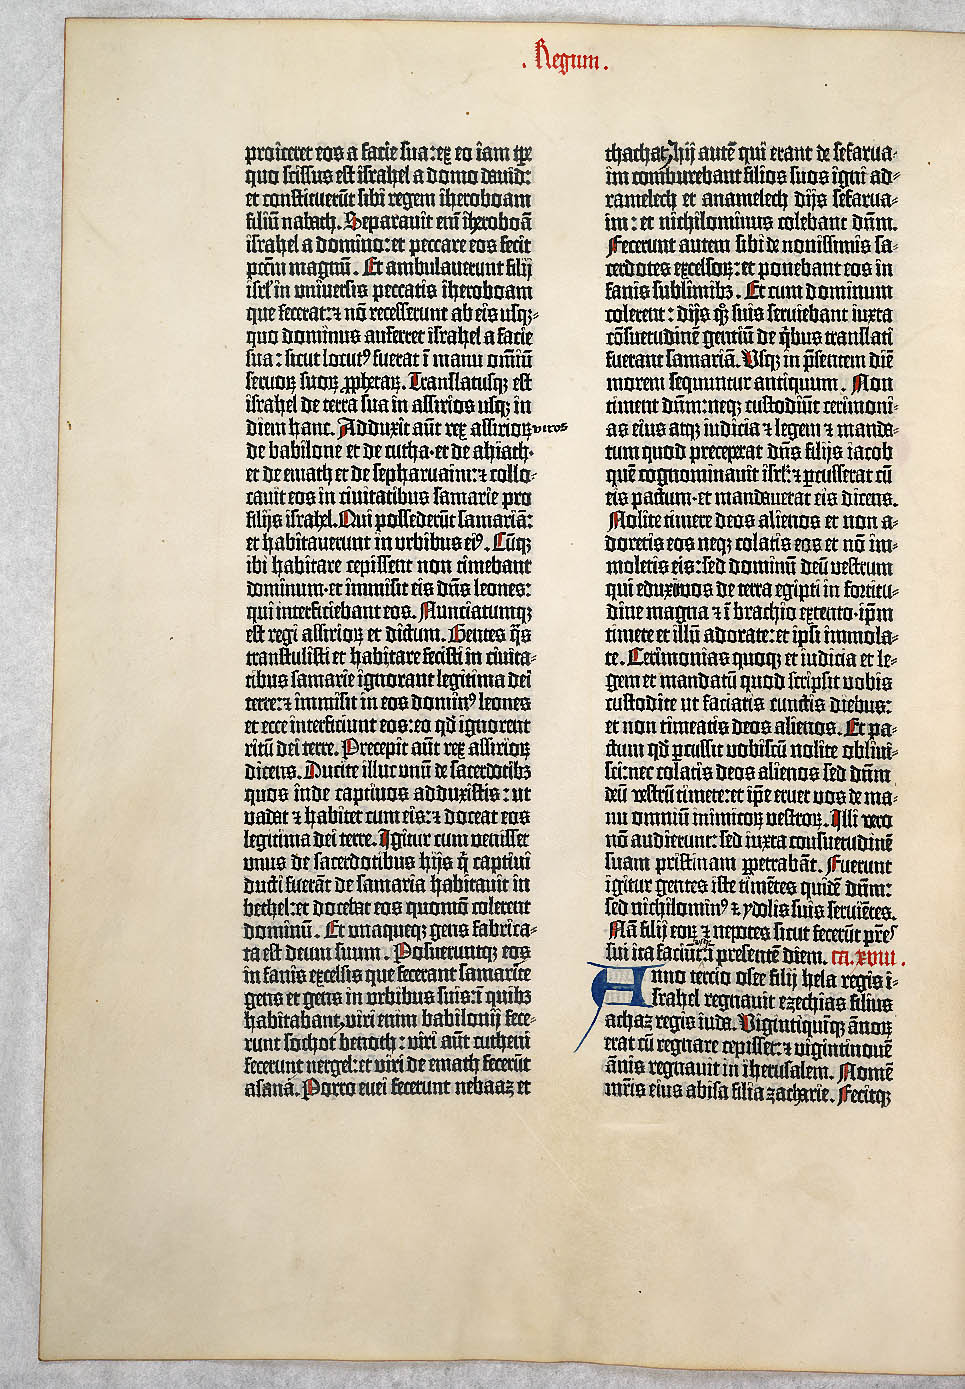 . Regum .
proiceret eos a facie sua: ex eo iam tp̄e
quo scissus est israhel a domo dauid:
et constituerūt sibi regem iheroboam
filiū nabath. Separauit enī iheroboā
israhel a domino: et peccare eos fecit
pctm̄ magnū. Et ambulauerunt filij
isrl̄ in vniuersis peccatis iheroboam
que fecerat: ⁊ nō recesserunt ab eis usq;-
quo dominus auferret israhel a facie
sua: sicut locutꝰ fuerat ī manu om̄niū
seruoꝝ suoꝝ ꝓphetaꝝ. Translatusq; est
israhel de terra sua in assirios usq; in
diem hanc. Adduxit aūt rex assirioꝝ viros
de babilone et de cutha· et de ahiath·
et de emath et de sepharuaim: ⁊ collo-
cauit eos in ciuitatibus samarie pro
filijs israhel. Qui possederūt samariā:
et habitauerunt in vrbibus eiꝰ. Cūq;
ibi habitare cepissent non timebant
dominum· et immisit eis dn̄s leones:
qui interficiebant eos. Nunciatumq;
est regi assirioꝝ et dictum. Gentes q̄s
transtulisti et habitare fecisti in ciuita-
tibus samarie ignorant legitima dei
terre: ⁊ immisit in eos dominꝰ leones
et ecce interficiunt eos: eo qd̄ ignorent
ritū dei terre. Precepit aūt rex assirioꝝ
dicens. Ducite illuc vnū de sacerdotibꝫ
quos inde captiuos adduxistis: ut
vadat ⁊ habitet cum eis: ⁊ doceat eos
legitima dei terre. Igitur cum venisset
vnus de sacerdotibus hijs q̄ captiui
ducti fuerāt de samaria habitauit in
bethel: et docebat eos quomō colerent
dominū. Et vnaqueq; gens fabrica-
ta est deum suum. Posueruntq; eos
in fanis excelsis que fecerant samarite
gens et gens in vrbibus suis: ī quibꝫ
habitabant, viri enim babilonij fece-
runt sochot benoth: viri aūt cutheni
fecerunt nergel: et viri de emath fecerūt
asanā. Porro euei fecerunt nebaaz et
thachat, hij autē qui erant de sefarua-
im comburebant filios suos igni ad-
ramelech et anamelech dijs sefarua-
im: et nichilominus colebant dn̄m.
Fecerunt autem sibi de nouissimis sa-
cerdotes excelsoꝝ: et ponebant eos in
fanis sublimibꝫ. Et cum dominum
colerent: dijs qꝫ suis seruiebant iuxta
cōsuetudinē gentiū de q̇bus translati
fuerant samariā. Usq; in p̄sentem diē
morem sequuntur antiquum. Non
timent dn̄m: neq; custodiūt cerimoni-
as eius atq; iudicia ⁊ legem ⁊ manda-
tum quod preceperat dn̄s filijs iacob
quē cognominauit isrl̄: ⁊ ꝑcusserat cū
eis pactum· et mandauerat eis dicens.
Nolite timere deos alienos et non a-
doretis eos neq; colatis eos et nō im-
moletis eis: sed dominū deū vestrum
qui eduxit vos de terra egipti in fortitu-
dine magna ⁊ ī brachio extento· ip̄m
timete et illū adorate: et ipsi immola-
te. Cerimonias quoq; et iudicia et le-
gem et mandatū quod scripsit vobis
custodite ut faciatis cunctis diebus:
et non timeatis deos alienos. Et pa-
ctum qd̄ ꝑcussit vobiscū nolite obliui-
sci: nec colatis deos alienos sed dn̄m
deū vestrū timete: et ip̄e eruet vos de ma-
nu omniū inimicoꝝ vestroꝝ. Illi vero
nō audierunt: sed iuxta consuetudinē
suam pristinam ꝑpetrabāt. Fuerunt
igitur gentes iste timētes quidē dn̄m:
sed nichilominꝰ ⁊ ydolis suis seruiētes.
Nā filij eoꝝ ⁊ nepotes sicut fecerūt pr̄es
sui ita faciūt: usq; ī presentē diem. ca. xviii .
Anno tercio osee filij hela regis i-
srahel regnauit ezechias filius
achaz regis iuda. Vigintiquīq; ānoꝝ
erat cū regnare cepisset: ⁊ vigintinouē
ānis regnauit in iherusalem. Nomē
mr̄is eius abisa filia zacharie. Fecitq;